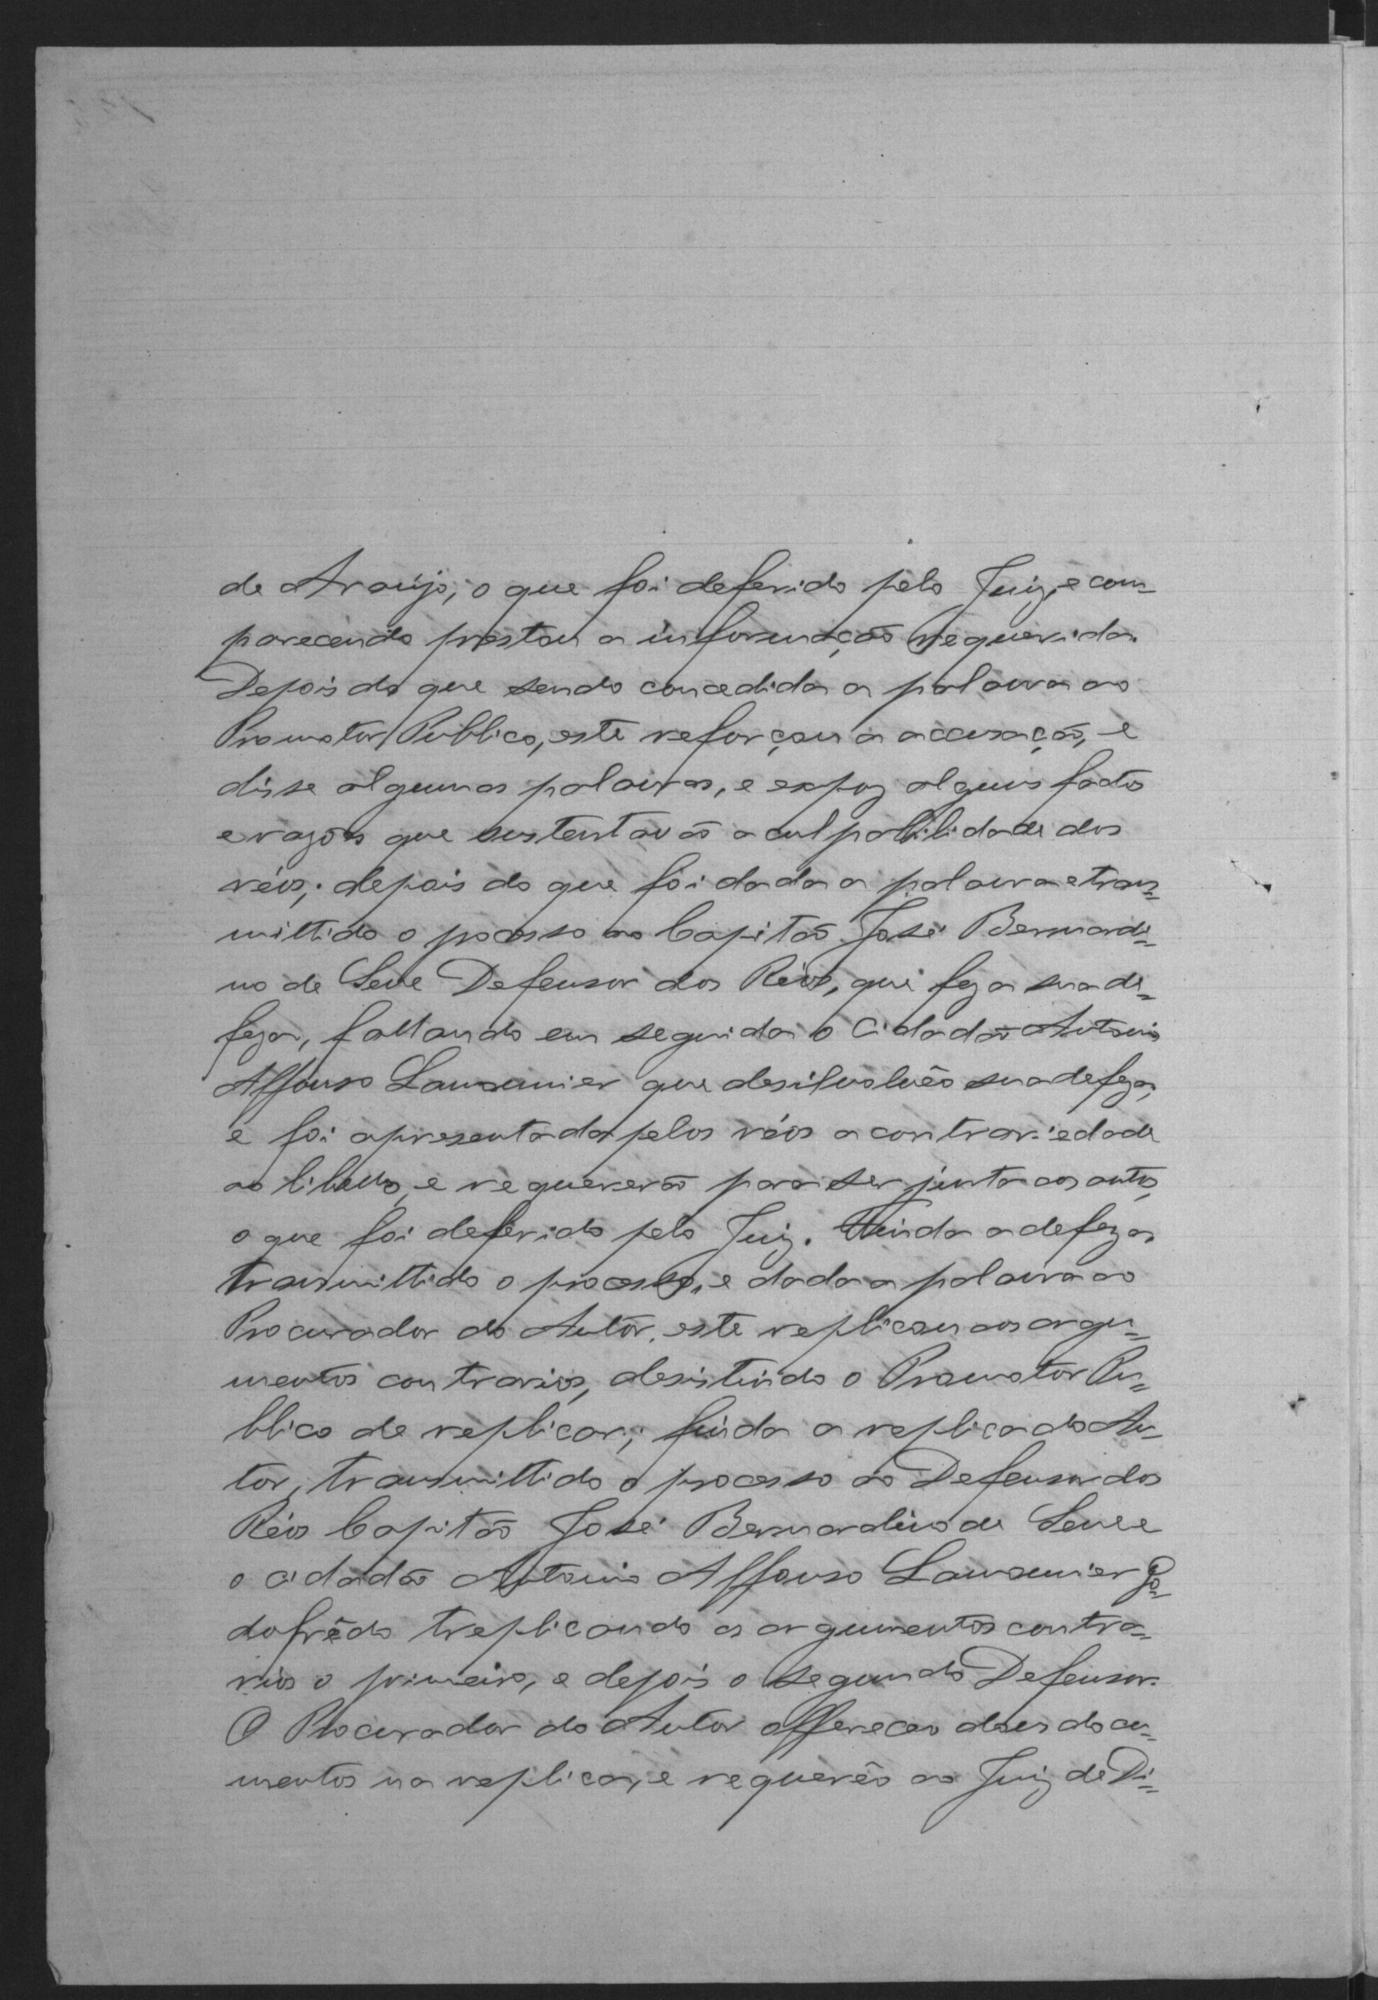 de Araújo; o que foi deferido pelo Juiz, e com=
parecendo prestou a informação requerida.
Depois do que sendo concedida a palavra ao
Promotor Publico, este reforçou a accusação, e
disse algumas palavras, e expoz alguns factos
e razões que sustentavão a culpabilidade dos
réos; depois do que foi dada a palavra e trans=
mittido o processo ao Capitão José Bernardi=
no de Sene Defensor dos Réos, que fez a sua de=
feza, fallando em seguida o Cidadão Antonio
Affonso Lamounier que desilvolvêo sua defeza,
e foi apresentada pelos réos a contrariedade
ao libello, e requererão para ser junta aos autos,
o que foi deferido pelo Juiz. Finda a defeza
transmittido o processo, e dada a palavra ao
Procurador do Autôr, este replicou aos argu=
mentos contrarios, desistindo o Promotor Pu=
blico de replicar; finda a replica do Au=
tor, transmittido o processo ao Defensor dos
Réos Capitão José Bernardino de Sene e
o cidadão Antonio Affonso Lamounier Go=
dofrêdo treplicando os argumentos contra=
rios o primeiro, e depois o segundo Defensor.
O Procurador do Autor offereceo dous docu=
mentos na replica, e requerêo ao Juiz de Di=